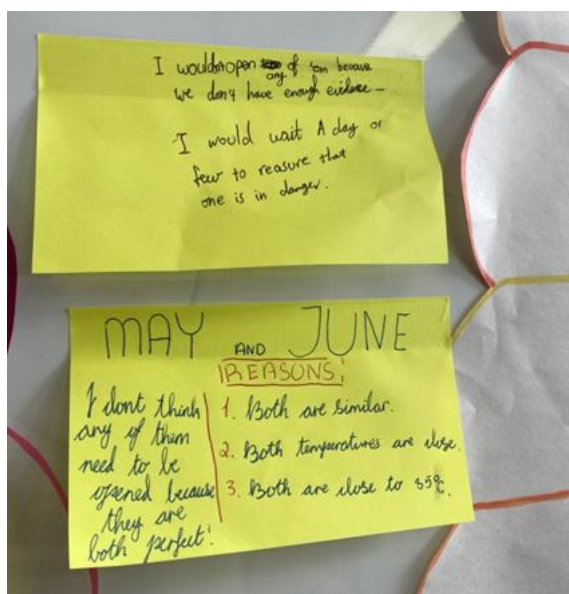 I wouldn't open any of 'em because
we don't have enough evidence –
I would wait A day or
few to reasure that
one is in danger.
MAY AND JUNE
REASONS!
I dont think
any of them
need to be
opened because
they are
both perfect!
1. Both are similar.
2. Both temperatures are close.
3. Both are close to 35°C.